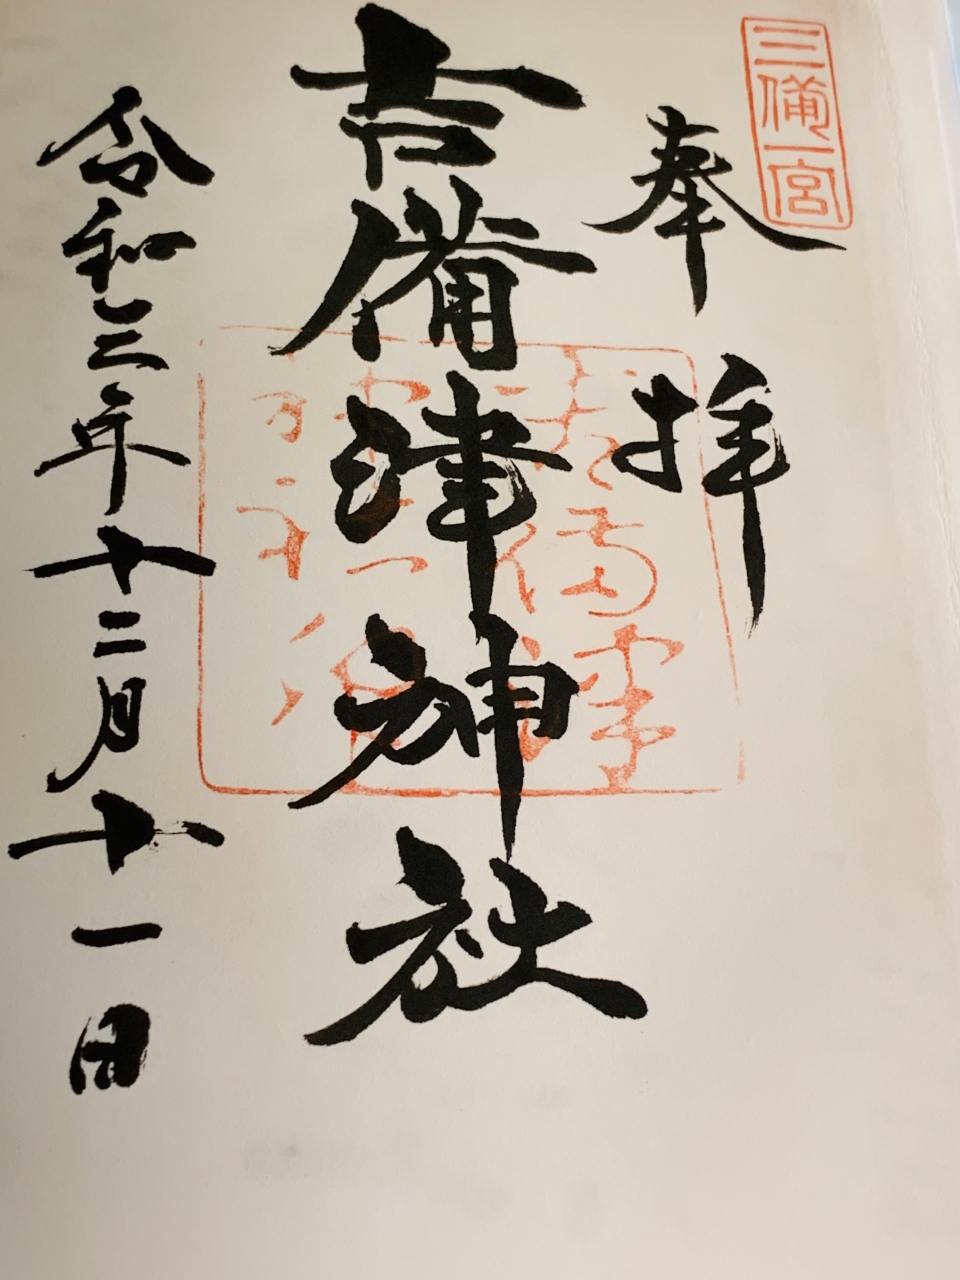 三備一宮
奉拝
吉備津神社
令和三年十二月十一日